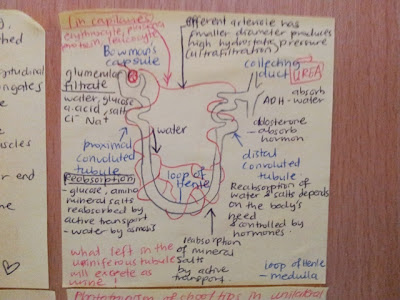 in capillaries
erythrocyte,
protein, leucocyte
efferent arteriole has
smaller diameter produces
high hydrostatic pressure
(ultrafiltration)
Bowmans
capsule
collecting
duct
UREA
glumerular
filtrate
water, glucose
a.acid, salts
Cl⁻ Na⁺
absorb
ADH - water
aldosterone
- absorb
hormon
water
proximal
convoluted
tubule
loop of
Henle
distal
convoluted
tubule
Reabsorption
- glucose, amino
mineral salts
reabsorbed by
active transport
- water by osmosis
Reabsorption of
water & salts depends
on the body's
need
& controlled by
hormones
what left in the
uriniferous tubule
will excrete as
urine!
reabsorption
of mineral
salts
by active
transport
loop of Henle
- medulla
ongates
end
in unilateral